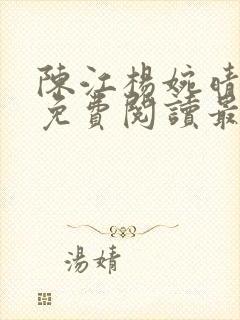 陳江楊婉晴
免費閱讀最
湯婧